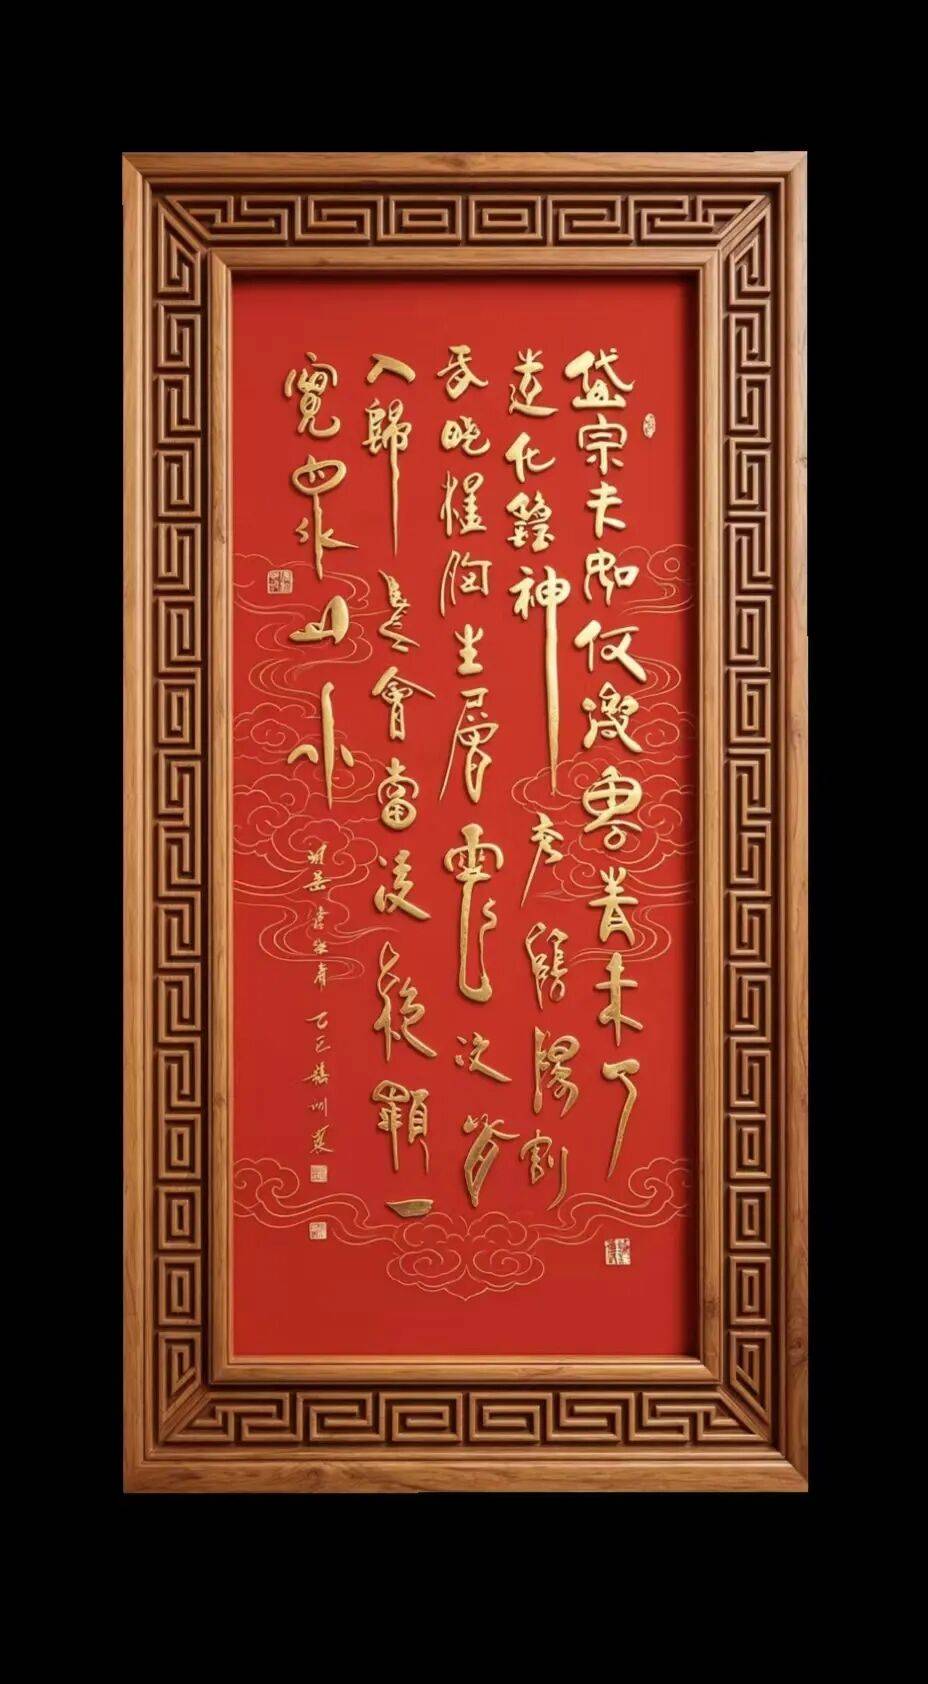 岱宗夫如何齊魯青未了
造化鍾神秀陰陽割
昏曉盪胸生層雲決眥
入歸鳥會當凌絕頂一
覽眾山小
乙巳